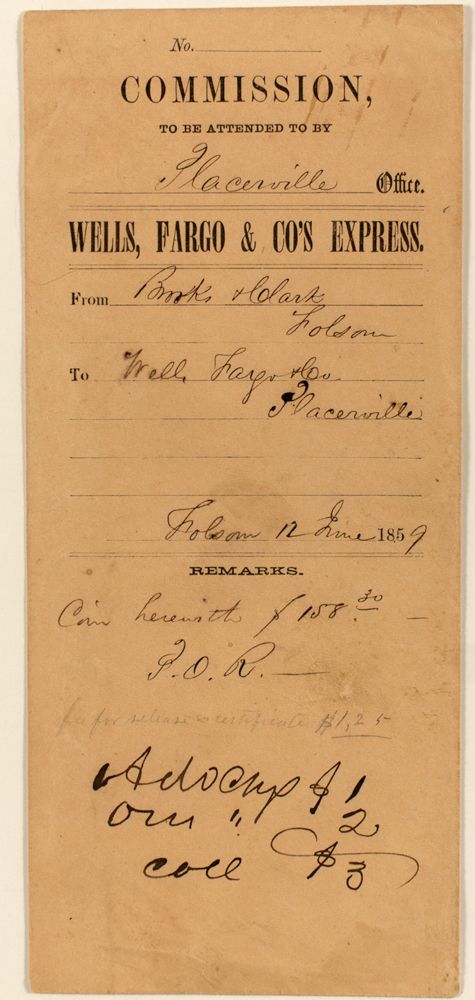 No.
COMMISSION,
TO BE ATTENDED TO BY
Placerville Office.
WELLS, FARGO & CO'S EXPRESS.
From Brooks & Clark
Folsom
To Wells Fargo & Co.
Placerville
Folsom 12 June 1859
REMARKS.
Coin herewith $158.30
P.O.R.
fee for release & certificate $1,25
Ado Chgs $1
Our " 2
coll $3